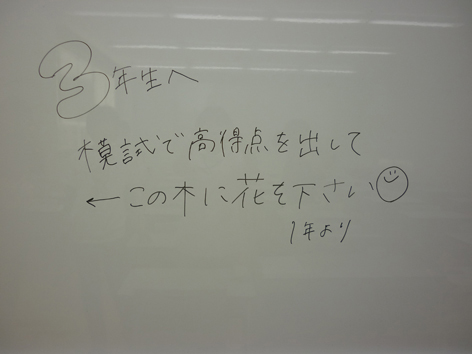 3年生へ
模試で高得点を出して
←この木に花を下さい☺
1年より